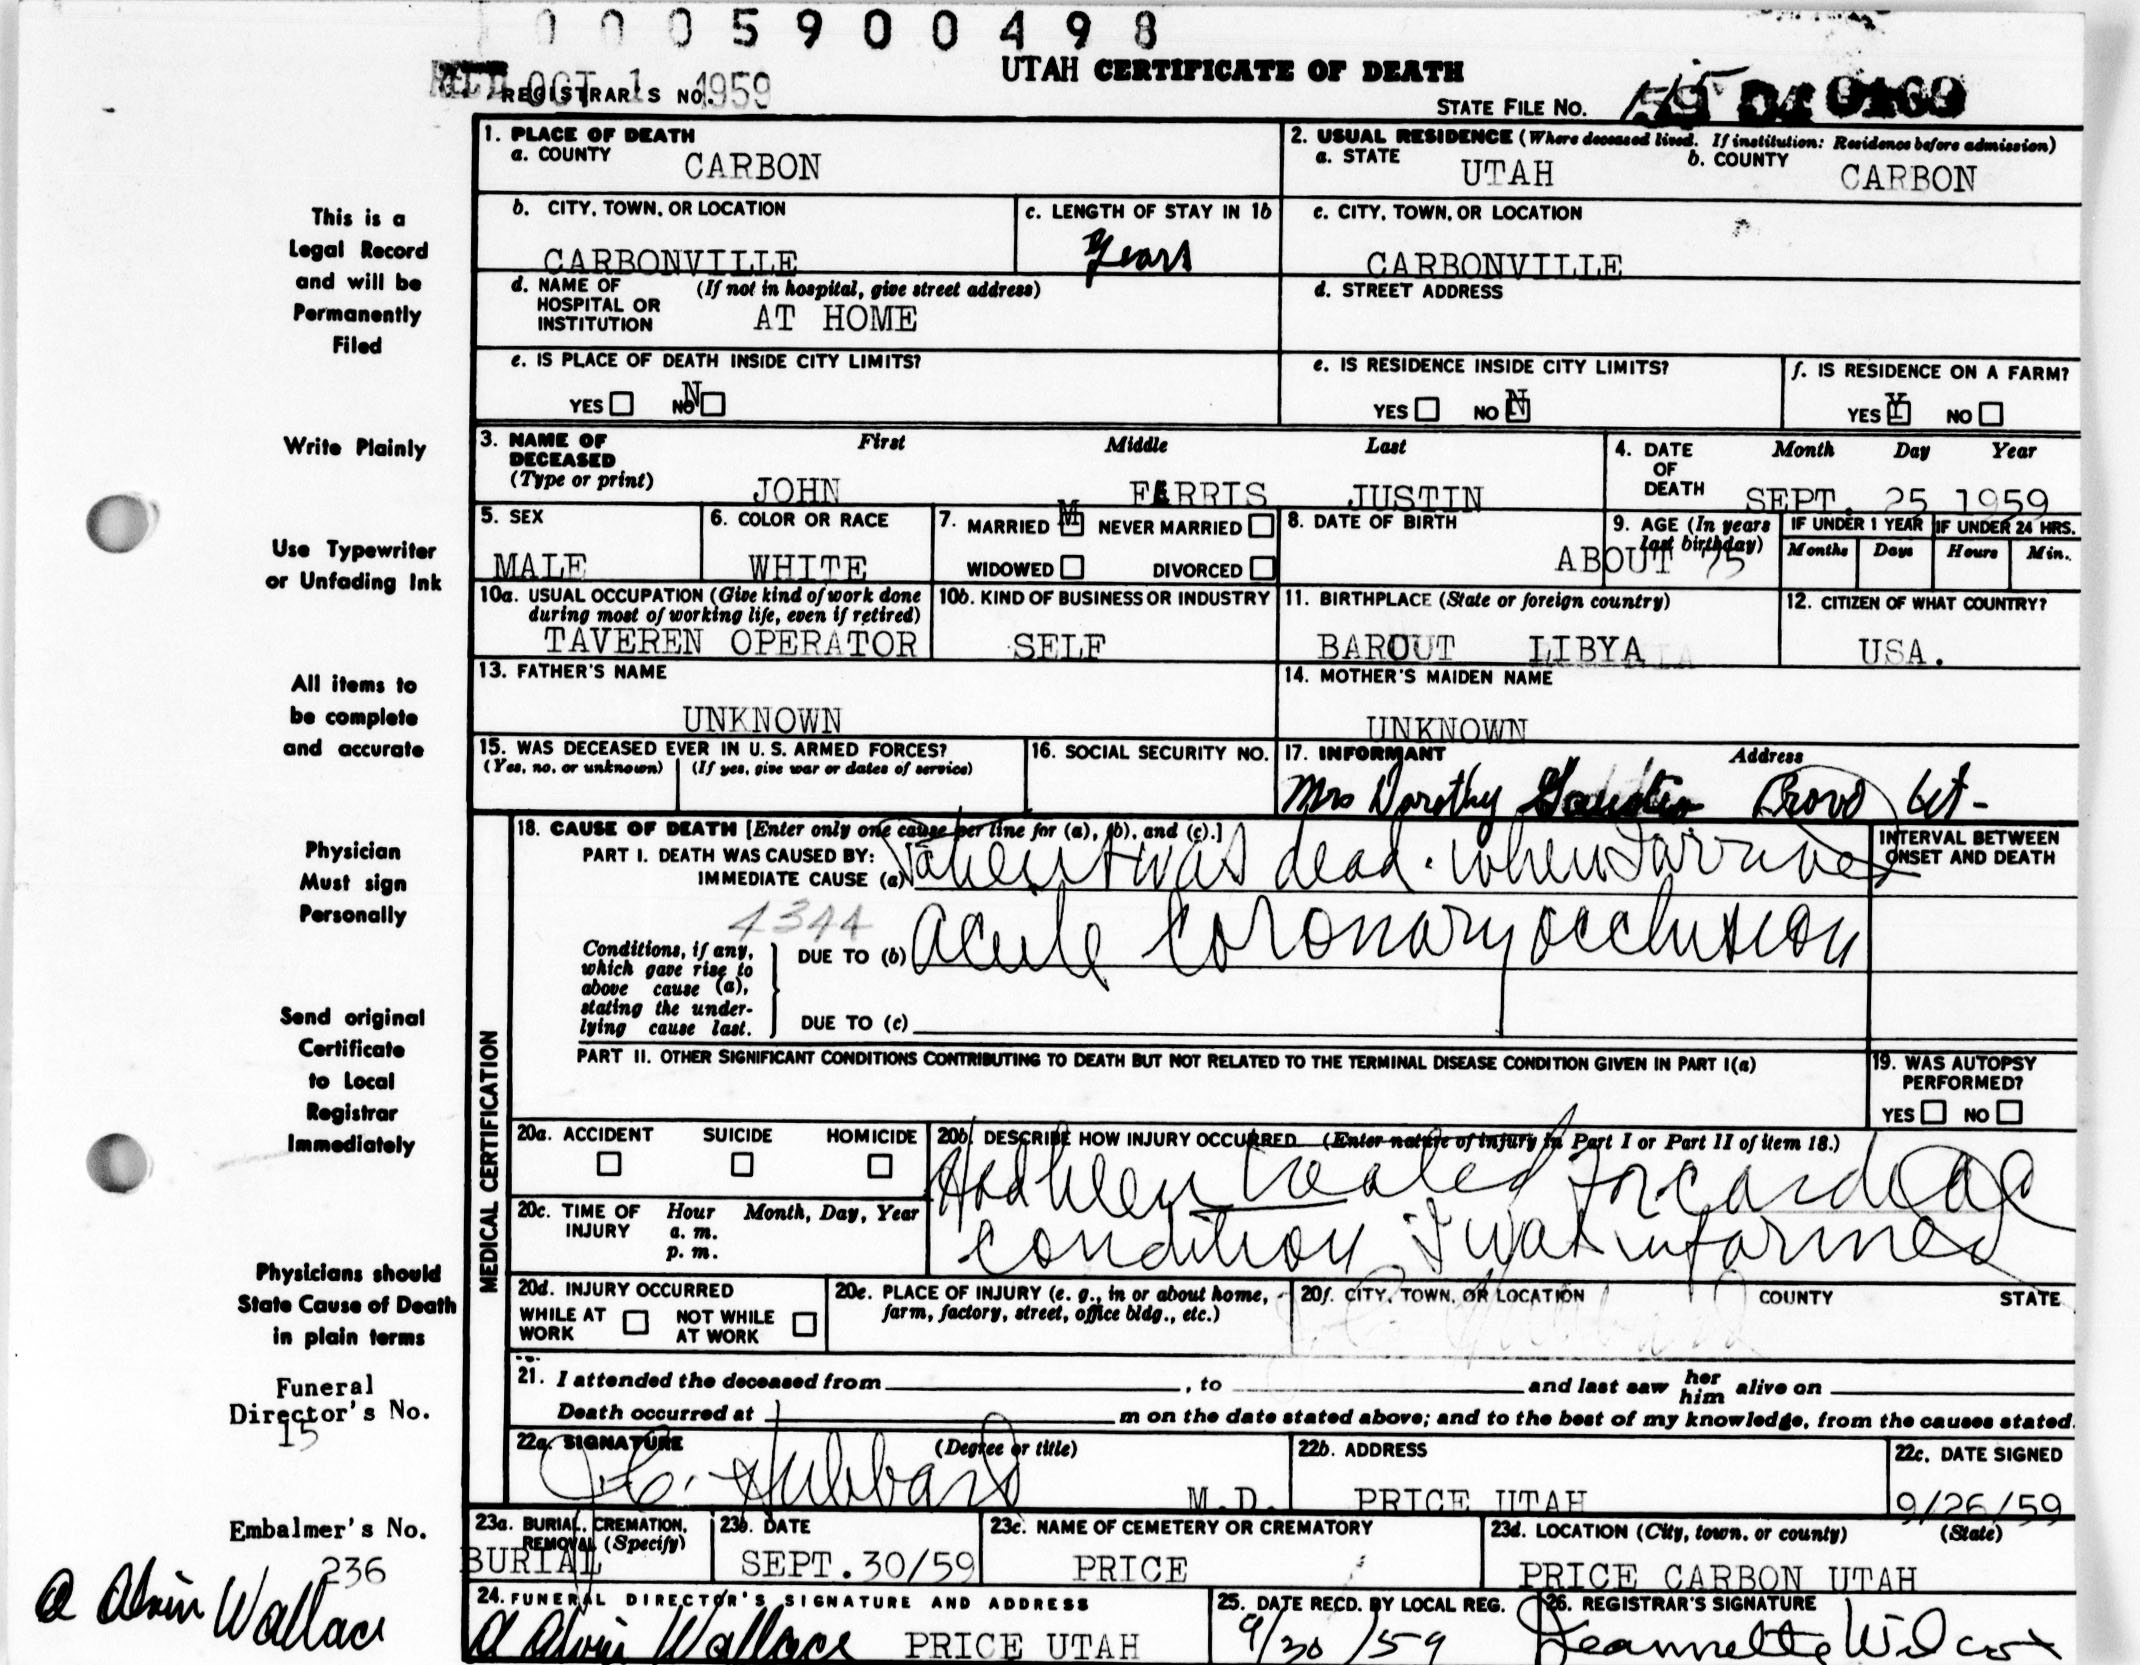 0 0 0 5 9 0 0 4 9 8
UTAH CERTIFICATE OF DEATH
OCT 1 1959
REGISTRAR'S NO.
STATE FILE NO.
1. PLACE OF DEATH
a. COUNTY CARBON
2. USUAL RESIDENCE (Where deceased lived. If institution: Residence before admission)
a. STATE UTAH b. COUNTY CARBON
b. CITY, TOWN, OR LOCATION
CARBONVILLE
c. LENGTH OF STAY IN 1b
Years
c. CITY, TOWN, OR LOCATION
CARBONVILLE
d. NAME OF HOSPITAL OR INSTITUTION (If not in hospital, give street address)
AT HOME
d. STREET ADDRESS
e. IS PLACE OF DEATH INSIDE CITY LIMITS?
YES NO N
e. IS RESIDENCE INSIDE CITY LIMITS?
YES NO N
f. IS RESIDENCE ON A FARM?
YES Y NO
3. NAME OF DECEASED (Type or print) First Middle Last
JOHN FARRIS JUSTIN
4. DATE OF DEATH Month Day Year
SEPT. 25 1959
5. SEX
MALE
6. COLOR OR RACE
WHITE
7. MARRIED M NEVER MARRIED
WIDOWED DIVORCED
8. DATE OF BIRTH
9. AGE (In years last birthday)
ABOUT 75
IF UNDER 1 YEAR IF UNDER 24 HRS.
Months Days Hours Min.
10a. USUAL OCCUPATION (Give kind of work done during most of working life, even if retired)
TAVEREN OPERATOR
10b. KIND OF BUSINESS OR INDUSTRY
SELF
11. BIRTHPLACE (State or foreign country)
BAROUT LIBYA
12. CITIZEN OF WHAT COUNTRY?
USA.
13. FATHER'S NAME
UNKNOWN
14. MOTHER'S MAIDEN NAME
UNKNOWN
15. WAS DECEASED EVER IN U. S. ARMED FORCES?
(Yes, no, or unknown) (If yes, give war or dates of service)
16. SOCIAL SECURITY NO.
17. INFORMANT Address
Mrs Dorothy Provo Ut-
18. CAUSE OF DEATH [Enter only one cause per line for (a), (b), and (c).]
PART I. DEATH WAS CAUSED BY:
IMMEDIATE CAUSE (a) Patient was dead when I arrived
INTERVAL BETWEEN ONSET AND DEATH
4344
Conditions, if any, which gave rise to above cause (a), stating the underlying cause last.
DUE TO (b) acute coronary occlusion
DUE TO (c)
PART II. OTHER SIGNIFICANT CONDITIONS CONTRIBUTING TO DEATH BUT NOT RELATED TO THE TERMINAL DISEASE CONDITION GIVEN IN PART I(a)
19. WAS AUTOPSY PERFORMED?
YES NO
MEDICAL CERTIFICATION
20a. ACCIDENT SUICIDE HOMICIDE
20b. DESCRIBE HOW INJURY OCCURRED. (Enter nature of injury in Part I or Part II of item 18.)
Had been treated for cardiac
condition I was informed
20c. TIME OF INJURY Hour Month, Day, Year
a. m.
p. m.
20d. INJURY OCCURRED
WHILE AT WORK NOT WHILE AT WORK
20e. PLACE OF INJURY (e. g., in or about home, farm, factory, street, office bldg., etc.)
20f. CITY, TOWN, OR LOCATION COUNTY STATE
21. I attended the deceased from , to and last saw her him alive on
Death occurred at m on the date stated above; and to the best of my knowledge, from the causes stated.
22a. SIGNATURE (Degree or title)
Hubbard M.D.
22b. ADDRESS
PRICE UTAH
22c. DATE SIGNED
9/26/59
23a. BURIAL, CREMATION, REMOVAL (Specify)
BURIAL
23b. DATE
SEPT.30/59
23c. NAME OF CEMETERY OR CREMATORY
PRICE
23d. LOCATION (City, town, or county) (State)
PRICE CARBON UTAH
24. FUNERAL DIRECTOR'S SIGNATURE AND ADDRESS
A Alvin Wallace PRICE UTAH
25. DATE RECD. BY LOCAL REG.
9/30/59
26. REGISTRAR'S SIGNATURE
Jeannette Wilcox
This is a
Legal Record
and will be
Permanently
Filed
Write Plainly
Use Typewriter
or Unfading Ink
All items to
be complete
and accurate
Physician
Must sign
Personally
Send original
Certificate
to Local
Registrar
Immediately
Physicians should
State Cause of Death
in plain terms
Funeral
Director's No.
15
Embalmer's No.
236
A Alvin Wallace